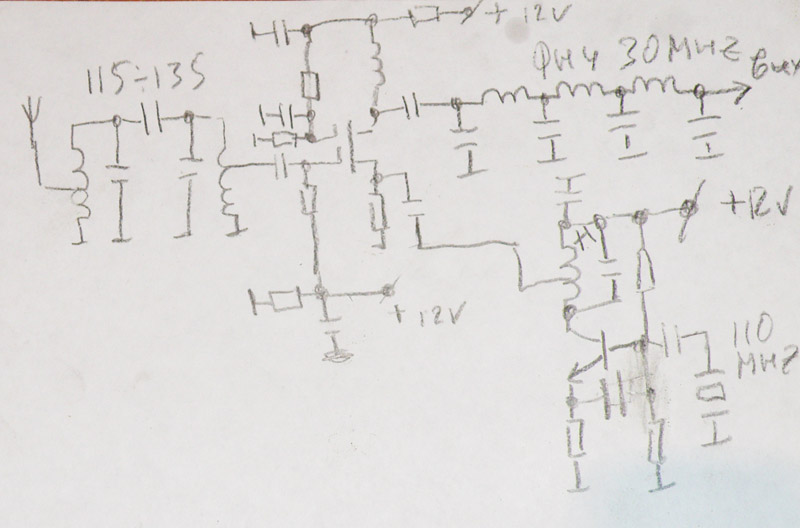 + 12V
115÷135
ФНЧ 30 MHZ вых
+12V
+ 12V
110
MHZ